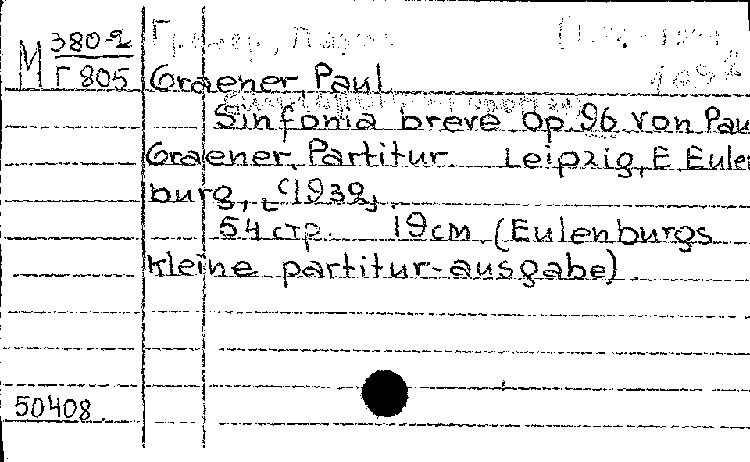 М 380-2
Г 805
Graener, Paul
Sinfonia breve op.96 von Pau
Graener. Partitur. Leipzig, E Eulen
burg, [c1932].
54 стр. 19см (Eulenburgs
kleine partitur-ausgabe).
50408.